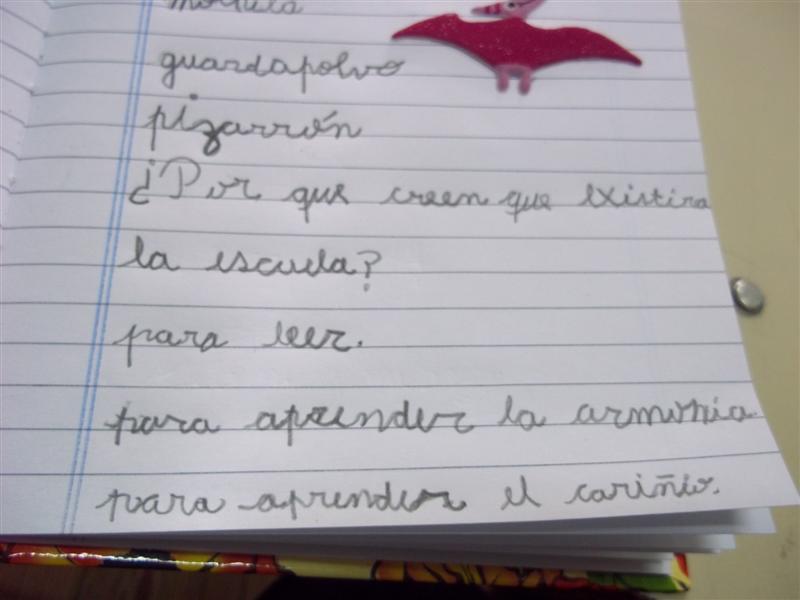 mochila
guardapolvo
pizarrón
¿Por que creen que existira
la escuela?
para leer.
para aprender la armonia
para aprender el cariñio.